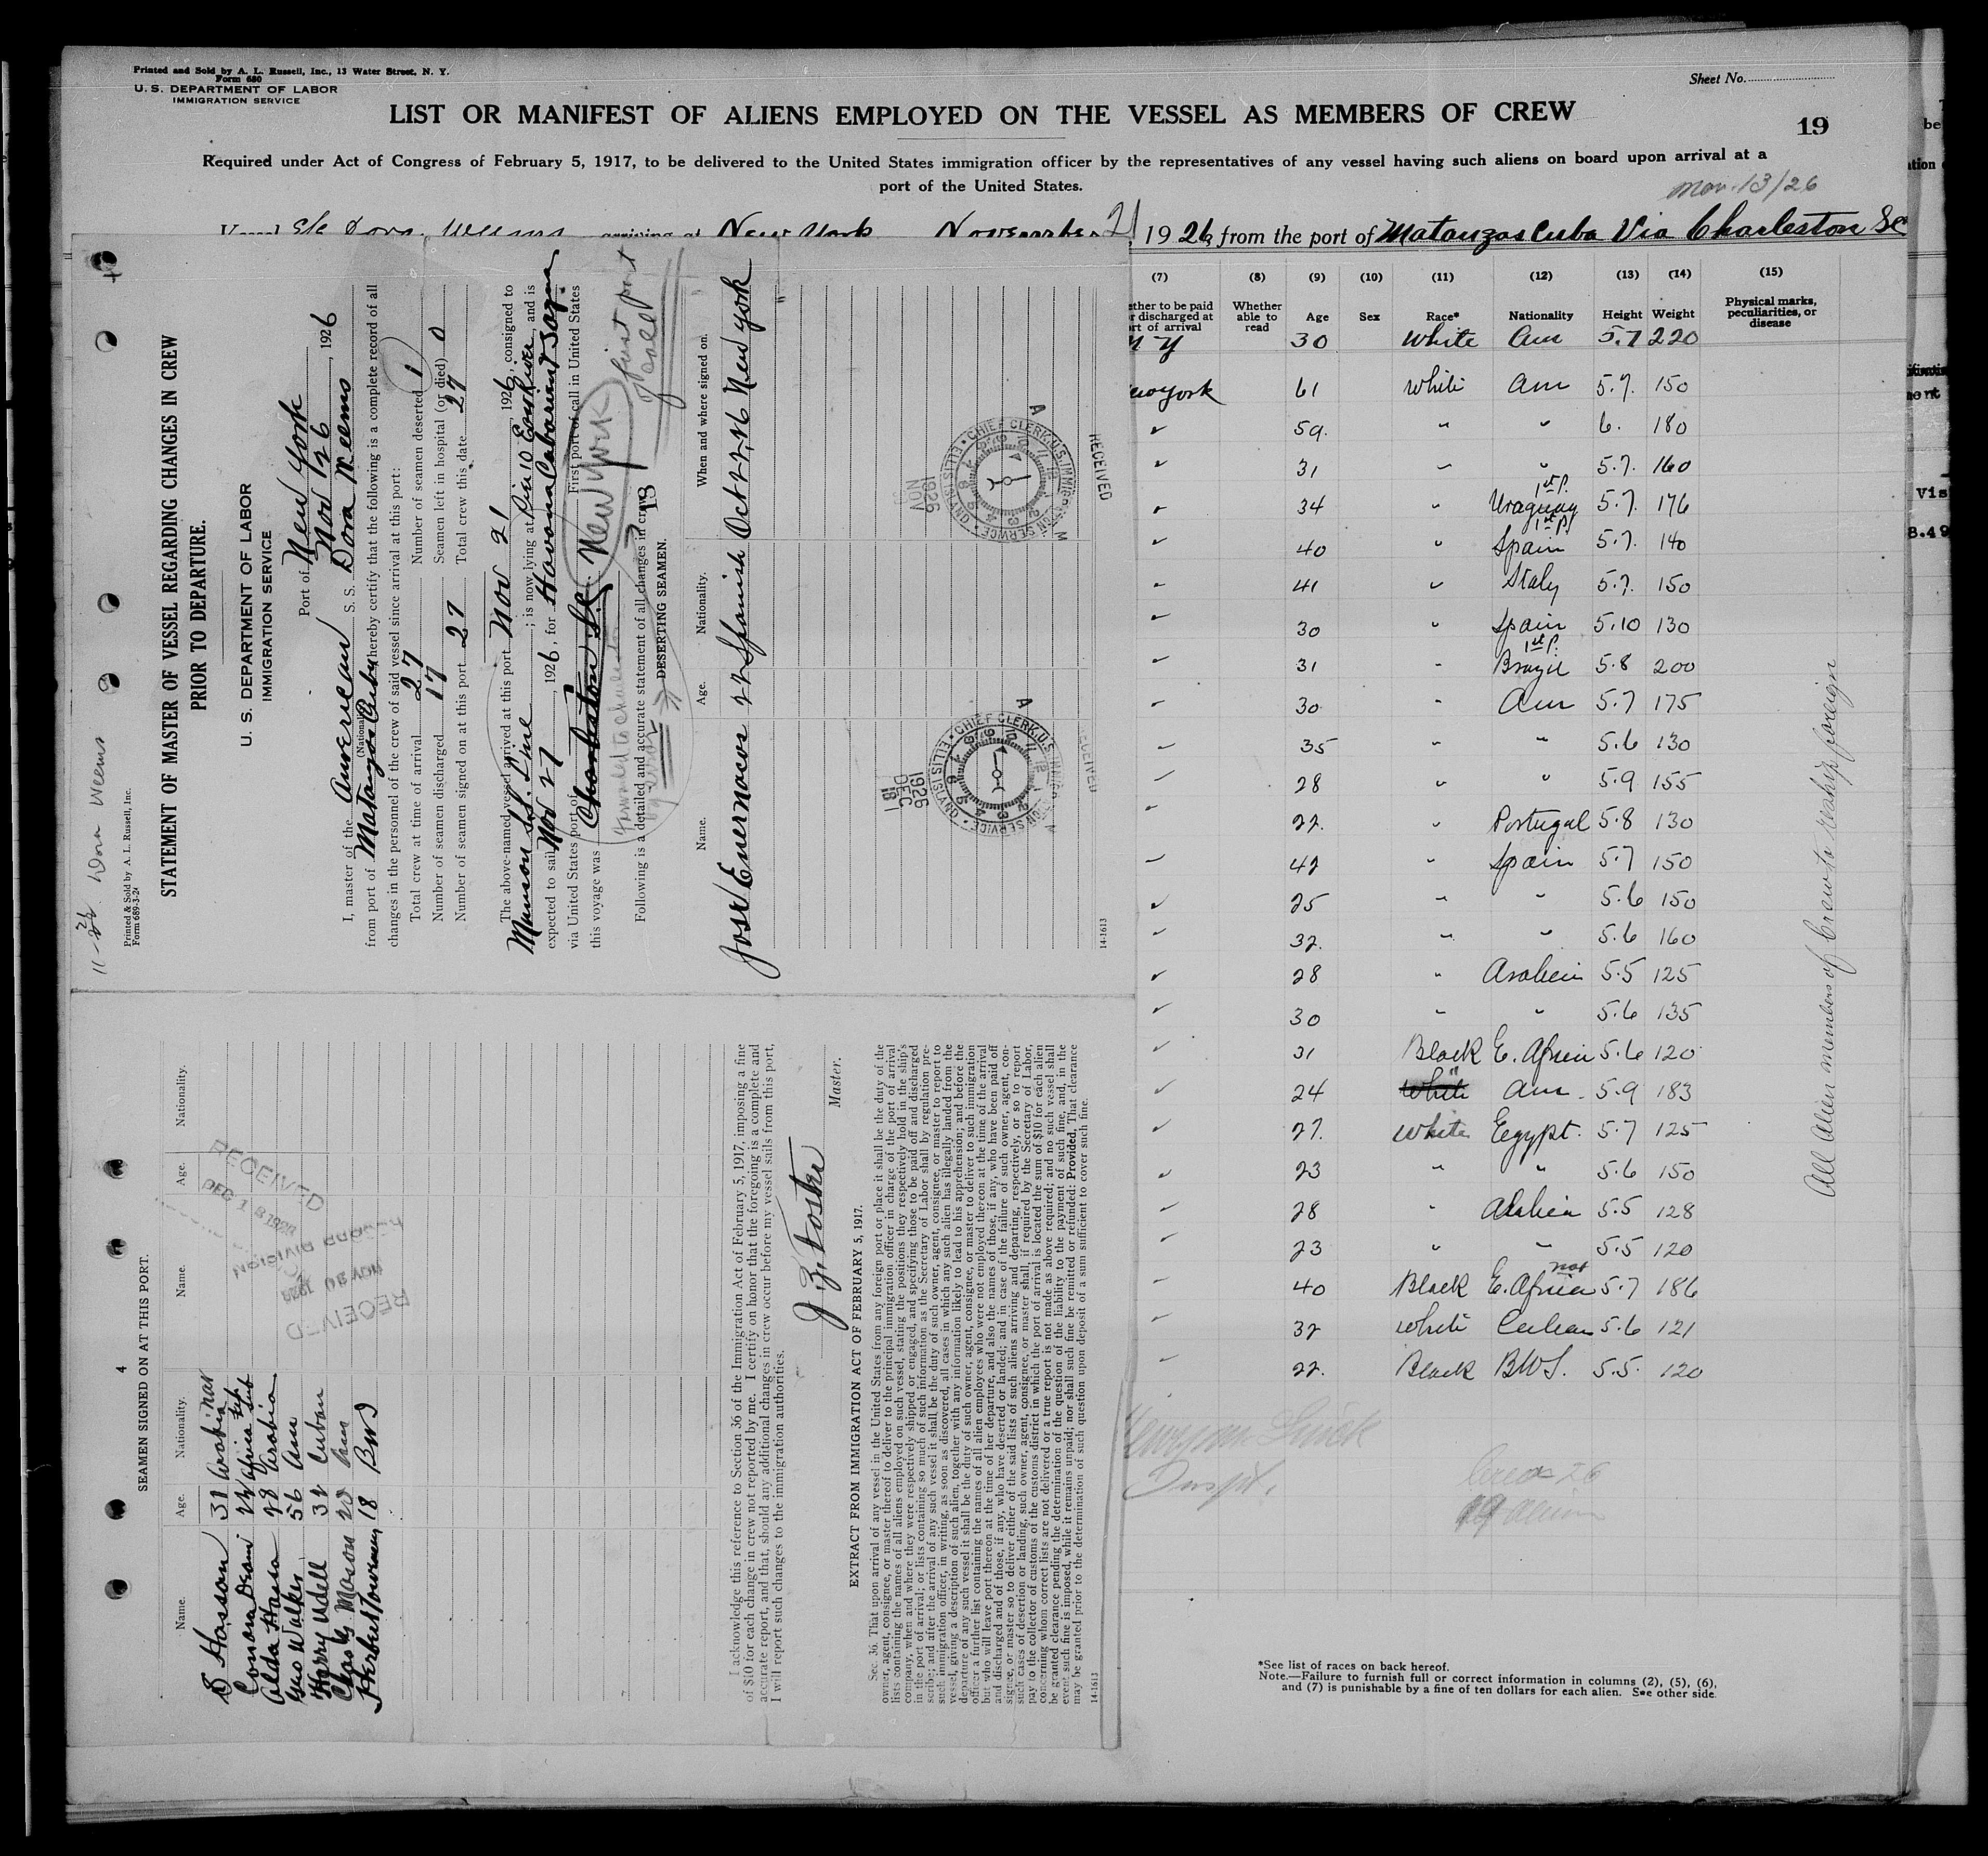 Printed and Sold by A. L. Russell, Inc., 13 Water Street, N. Y.
Form 680
U. S. DEPARTMENT OF LABOR
IMMIGRATION SERVICE
Sheet No.
LIST OR MANIFEST OF ALIENS EMPLOYED ON THE VESSEL AS MEMBERS OF CREW
19
Required under Act of Congress of February 5, 1917, to be delivered to the United States immigration officer by the representatives of any vessel having such aliens on board upon arrival at a
port of the United States.
Nov. 13/26
arriving at New York November 21, 1926, from the port of Matanzas Cuba Via Charleston SC
(7) (8) (9) (10) (11) (12) (13) (14) (15)
ether to be paid or discharged at rt of arrival
Whether able to read
Age
Sex
Race*
Nationality
Height
Weight
Physical marks, peculiarities, or disease
N Y 30 White Am 5.7 220
ew York 61 White Am 5.7. 150
59. " " 6. 180
31 " " 5.7. 160
1st P.
34 " Uraguay 5.7. 176
1st P.
40 " Spain 5.7. 140
41 " Italy 5.7. 150
30 " Spain 5.10 130
1st P.
31 " Brazil 5.8 200
30 " Am 5.7 175
35 " " 5.6 130
28 " " 5.9 155
22. " Portugal 5.8 130
42 " Spain 5.7 150
25 " " 5.6 150
32. " " 5.6 160
28 " Arabien 5.5 125
30 " " 5.6 135
31 Black E. Africa 5.6 120
24 White " Am. 5.9 183
27. White Egypt. 5.7 125
23 " " 5.6 150
28 " Arabien 5.5 128
23 " " 5.5 120
40 Black E. Africa 5.7 186
32 White Cuban 5.6 121
22. Black BWI. 5.5. 120
All Alien members of Crew to reship foreign
Inspt.
Crew 26
19 Aliens
*See list of races on back hereof.
Note.—Failure to furnish full or correct information in columns (2), (5), (6),
and (7) is punishable by a fine of ten dollars for each alien. See other side.
Dora Weems
Printed & Sold by A. L. Russell, Inc.
STATEMENT OF MASTER OF VESSEL REGARDING CHANGES IN CREW
PRIOR TO DEPARTURE.
U. S. DEPARTMENT OF LABOR
IMMIGRATION SERVICE
Port of New York
Nov 26, 1926
I, master of the American S. S. Dora Weems
(Nationality)
from port of Matanzas Cuba, hereby certify that the following is a complete record of all
changes in the personnel of the crew of said vessel since arrival at this port:
Total crew at time of arrival 27 Number of seamen deserted 1
Number of seamen discharged 17 Seamen left in hospital (or died) 0
Number of seamen signed on at this port 27 Total crew this date 27
The above-named vessel arrived at this port Nov 21, 1926, consigned to
Munson S.S. Line; is now lying at Pier 10 East River, and is
expected to sail Nov 27, 1926, for Havana Cabarien & Sagua
via United States port of First port of call in United States
this voyage was Charleston SC. New York
first port of call
Following is a detailed and accurate statement of all changes in crew
13
DESERTING SEAMEN.
Name. Age. Nationality. When and where signed on.
Jose 22 Spanish Oct 22, 26 New York
RECEIVED
CHIEF CLERK, U. S. IMMIGRATION SERVICE
ELLIS ISLAND
1926 NOV
RECEIVED
CHIEF CLERK, U. S. IMMIGRATION SERVICE
ELLIS ISLAND
1926 DEC 18
14-1613
4
SEAMEN SIGNED ON AT THIS PORT.
Name. Age. Nationality. Name. Age. Nationality.
S Hassan 31 Arabia
22 Africa
Alda Hassa 28 Arabia
Geo Walker 56 Am
Harry Udell 32 Cuban
Chas G Mason 20 Am
Herbert 18 BWI
RECEIVED
DEC 1 8 1926
RECORD DIVISION
NOV 30 1926
RECEIVED
I acknowledge this reference to Section 36 of the Immigration Act of February 5, 1917, imposing a fine
of $10 for each change in crew not reported by me. I certify on honor that the foregoing is a complete and
accurate report, and that, should any additional changes in crew occur before my vessel sails from this port,
I will report such changes to the immigration authorities.
Master.
EXTRACT FROM IMMIGRATION ACT OF FEBRUARY 5, 1917.
Sec. 36. That upon arrival of any vessel in the United States from any foreign port or place it shall be the duty of the
owner, agent, consignee, or master thereof to deliver to the principal immigration officer in charge of the port of arrival
lists containing the names of all aliens employed on such vessel, stating the positions they respectively hold in the ship's
company, when and where they were respectively shipped or engaged, and specifying those to be paid off and discharged
in the port of arrival; or lists containing so much of such information as the Secretary of Labor shall by regulation pre-
scribe; and after the arrival of any such vessel it shall be the duty of such owner, agent, consignee, or master to report to
such immigration officer, in writing, as soon as discovered, all cases in which any such alien has illegally landed from the
vessel, giving a description of such alien, together with any information likely to lead to his apprehension; and before the
departure of any such vessel it shall be the duty of such owner, agent, consignee, or master to deliver to such immigration
officer a further list containing the names of all alien employees who were not employed thereon at the time of the arrival
but who will leave port thereon at the time of her departure, and also the names of those, if any, who have been paid off
and discharged and of those, if any, who have deserted or landed; and in case of the failure of such owner, agent, con-
signee, or master so to deliver either of the said lists of such aliens arriving and departing, respectively, or so to report
such cases of desertion or landing, such owner, agent, consignee, or master shall, if required by the Secretary of Labor,
pay to the collector of customs of the customs district in which the port of arrival is located the sum of $10 for each alien
concerning whom correct lists are not delivered or a true report is not made as above required; and no such vessel shall
be granted clearance pending the determination of the question of the liability to the payment of such fine, and, in the
event such fine is imposed, while it remains unpaid; nor shall such fine be remitted or refunded: Provided, That clearance
may be granted prior to the determination of such question upon deposit of a sum sufficient to cover such fine.
14-1613